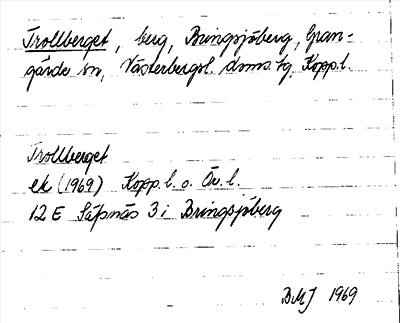 Trollberget, berg, Bringsjöberg, Gran-
gärde sn, Västerbergsl. doms. hg, Kopp.l.
Trollberget
ek (1969) Kopp.l. o. Ör.l.
12 E Säfsnäs 3 i Bringsjöberg
BMJ 1969